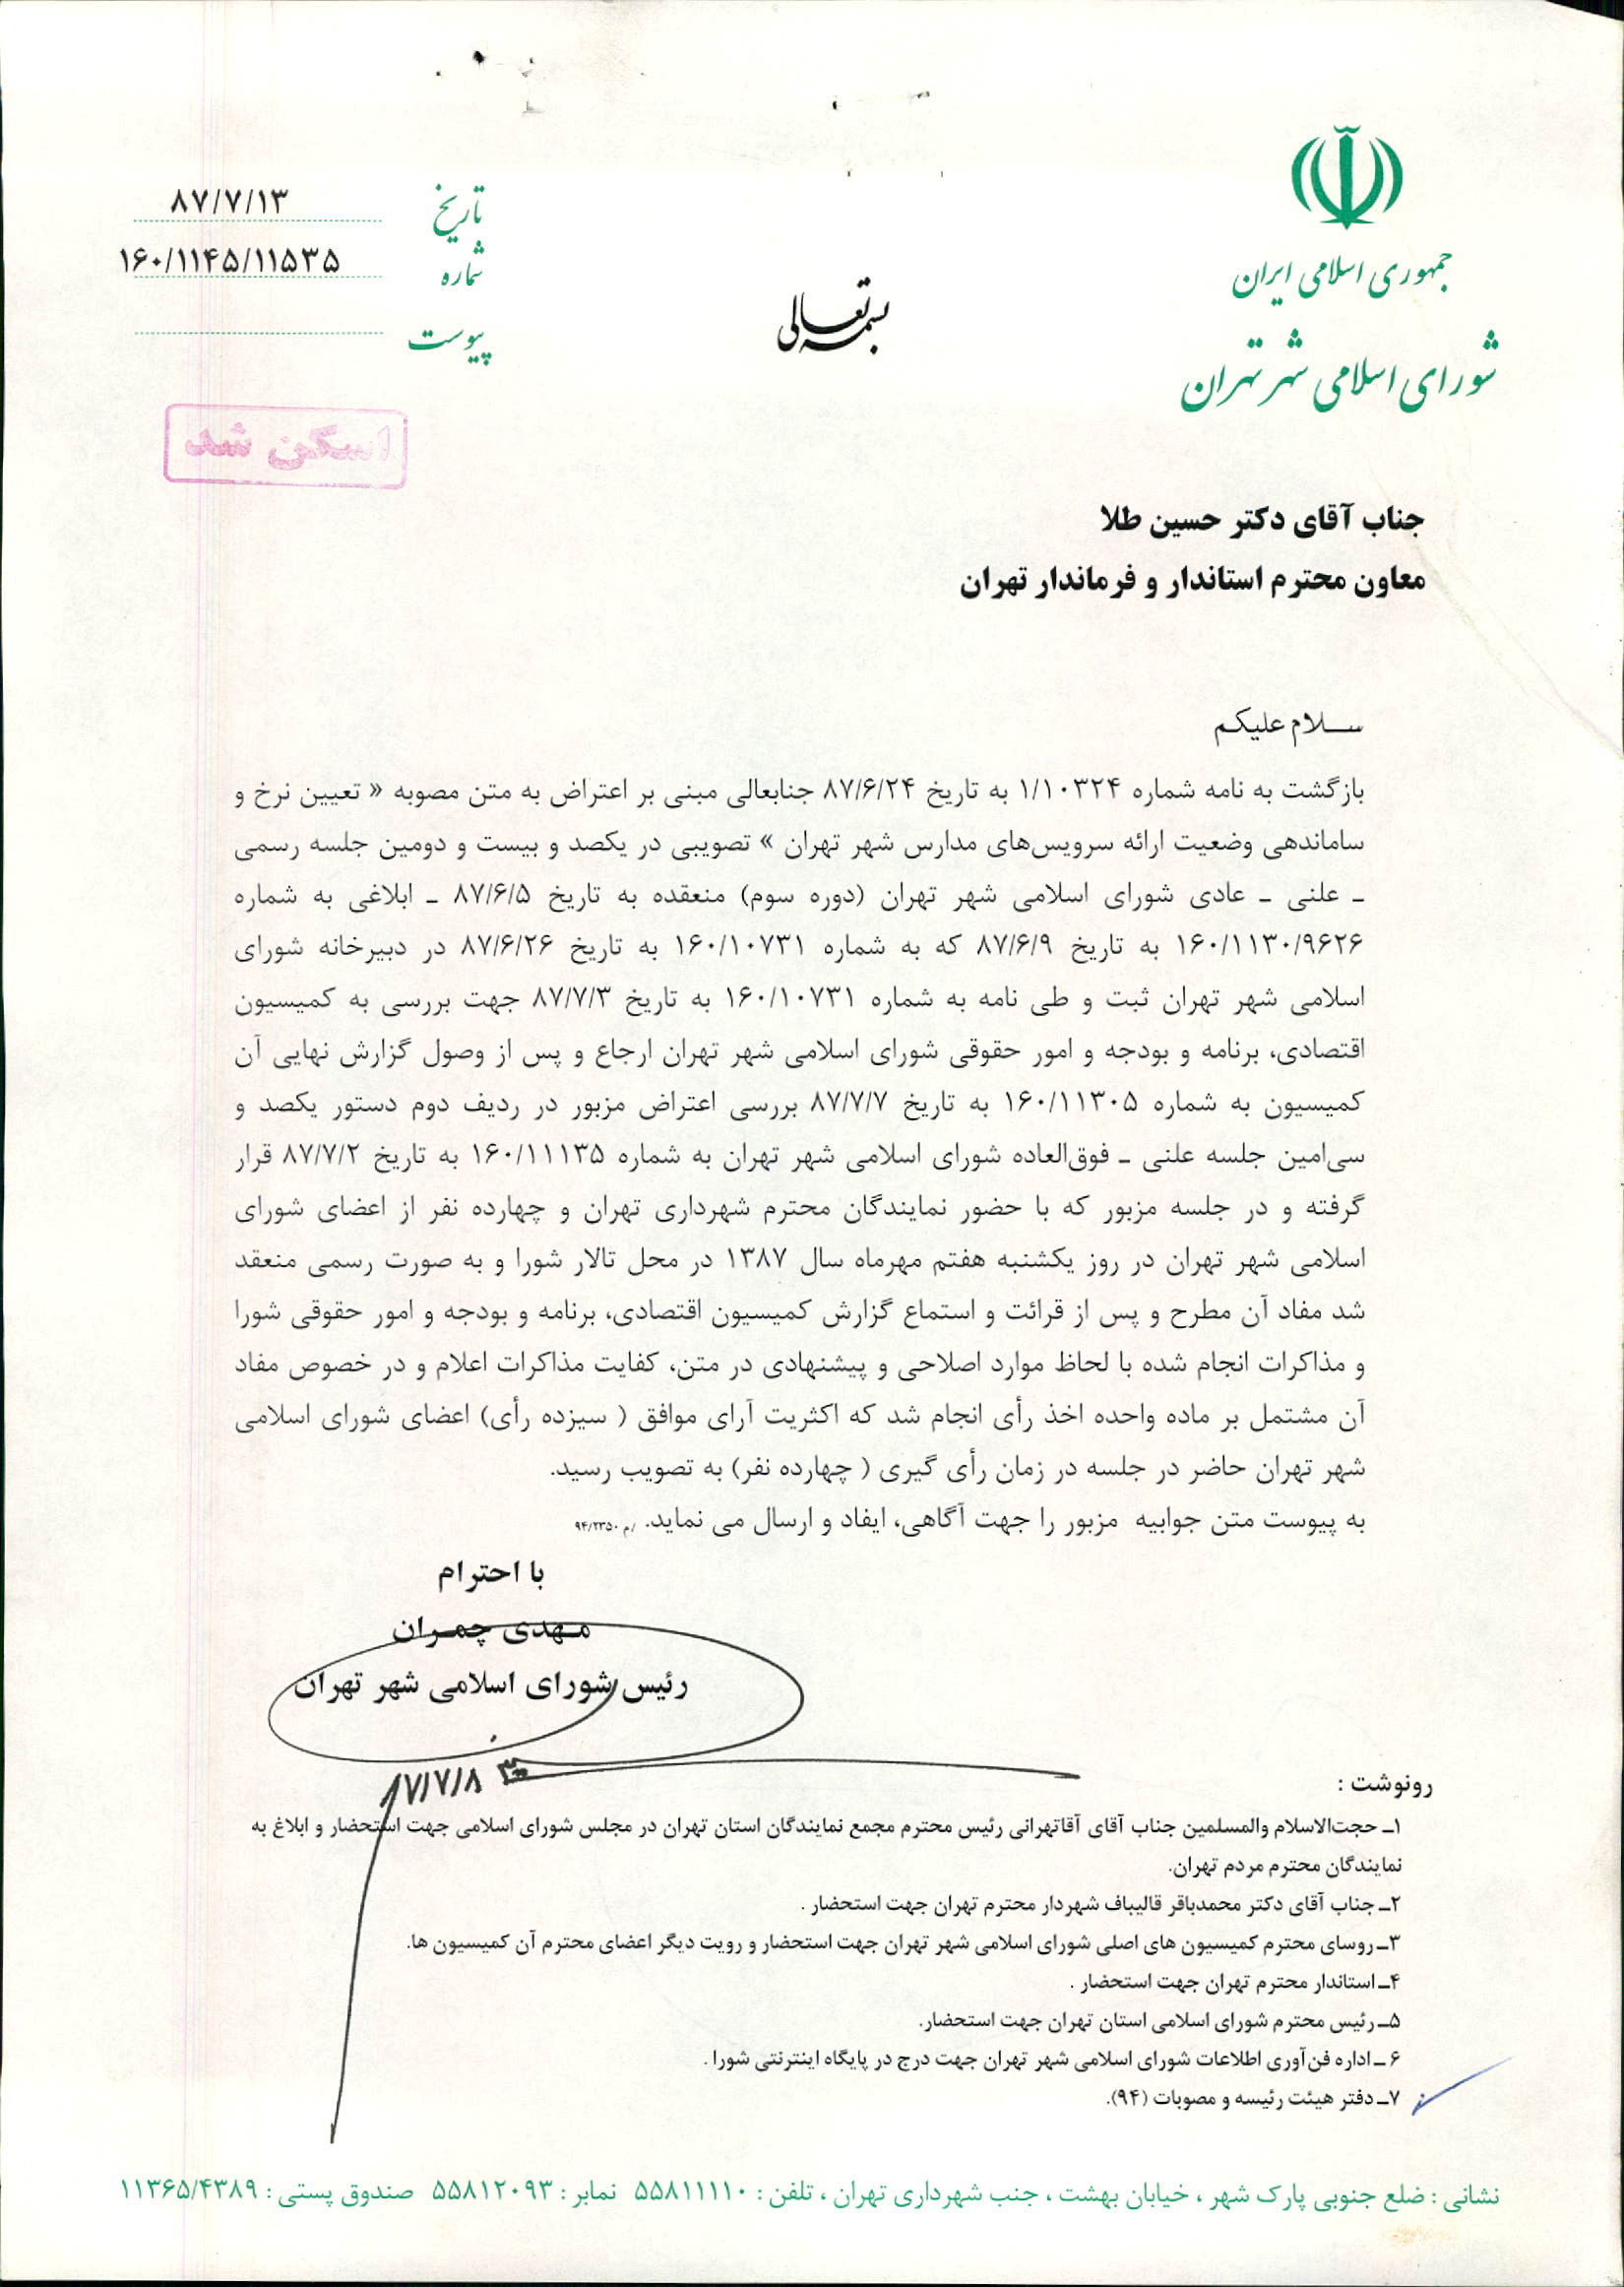 جمهوری اسلامی ایران
شورای اسلامی شهر تهران
بسمه تعالی
تاریخ ۸۷/۷/۱۳
شماره ۱۶۰/۱۱۴۵/۱۱۵۳۵
پیوست
اسکن شد
جناب آقای دکتر حسین طلا
معاون محترم استاندار و فرماندار تهران
ســلام علیکم
بازگشت به نامه شماره ۱/۱۰۳۲۴ به تاریخ ۸۷/۶/۲۴ جنابعالی مبنی بر اعتراض به متن مصوبه « تعیین نرخ و
ساماندهی وضعیت ارائه سرویس‌های مدارس شهر تهران » تصویبی در یکصد و بیست و دومین جلسه رسمی
ـ علنی ـ عادی شورای اسلامی شهر تهران (دوره سوم) منعقده به تاریخ ۸۷/۶/۵ ـ ابلاغی به شماره
۱۶۰/۱۱۳۰/۹۶۲۶ به تاریخ ۸۷/۶/۹ که به شماره ۱۶۰/۱۰۷۳۱ به تاریخ ۸۷/۶/۲۶ در دبیرخانه شورای
اسلامی شهر تهران ثبت و طی نامه به شماره ۱۶۰/۱۰۷۳۱ به تاریخ ۸۷/۷/۳ جهت بررسی به کمیسیون
اقتصادی، برنامه و بودجه و امور حقوقی شورای اسلامی شهر تهران ارجاع و پس از وصول گزارش نهایی آن
کمیسیون به شماره ۱۶۰/۱۱۳۰۵ به تاریخ ۸۷/۷/۷ بررسی اعتراض مزبور در ردیف دوم دستور یکصد و
سی‌امین جلسه علنی ـ فوق‌العاده شورای اسلامی شهر تهران به شماره ۱۶۰/۱۱۱۳۵ به تاریخ ۸۷/۷/۲ قرار
گرفته و در جلسه مزبور که با حضور نمایندگان محترم شهرداری تهران و چهارده نفر از اعضای شورای
اسلامی شهر تهران در روز یکشنبه هفتم مهرماه سال ۱۳۸۷ در محل تالار شورا و به صورت رسمی منعقد
شد مفاد آن مطرح و پس از قرائت و استماع گزارش کمیسیون اقتصادی، برنامه و بودجه و امور حقوقی شورا
و مذاکرات انجام شده با لحاظ موارد اصلاحی و پیشنهادی در متن، کفایت مذاکرات اعلام و در خصوص مفاد
آن مشتمل بر ماده واحده اخذ رأی انجام شد که اکثریت آرای موافق ( سیزده رأی) اعضای شورای اسلامی
شهر تهران حاضر در جلسه در زمان رأی گیری ( چهارده نفر) به تصویب رسید.
به پیوست متن جوابیه مزبور را جهت آگاهی، ایفاد و ارسال می نماید. /م ۹۴/۲۳۵۰
با احترام
مـهدی چمـران
رئیس شورای اسلامی شهر تهران
۸۷/۷/۸
رونوشت :
۱ـ حجت‌الاسلام والمسلمین جناب آقای آقاتهرانی رئیس محترم مجمع نمایندگان استان تهران در مجلس شورای اسلامی جهت استحضار و ابلاغ به
نمایندگان محترم مردم تهران.
۲ـ جناب آقای دکتر محمدباقر قالیباف شهردار محترم تهران جهت استحضار .
۳ـ روسای محترم کمیسیون های اصلی شورای اسلامی شهر تهران جهت استحضار و رویت دیگر اعضای محترم آن کمیسیون ها.
۴ـ استاندار محترم تهران جهت استحضار .
۵ـ رئیس محترم شورای اسلامی استان تهران جهت استحضار.
۶ ـ اداره فن‌آوری اطلاعات شورای اسلامی شهر تهران جهت درج در پایگاه اینترنتی شورا .
۷ـ دفتر هیئت رئیسه و مصوبات (۹۴).
نشانی : ضلع جنوبی پارک شهر ، خیابان بهشت ، جنب شهرداری تهران ، تلفن : ۵۵۸۱۱۱۱۰ نمابر : ۵۵۸۱۲۰۹۳ صندوق پستی : ۱۱۳۶۵/۴۳۸۹